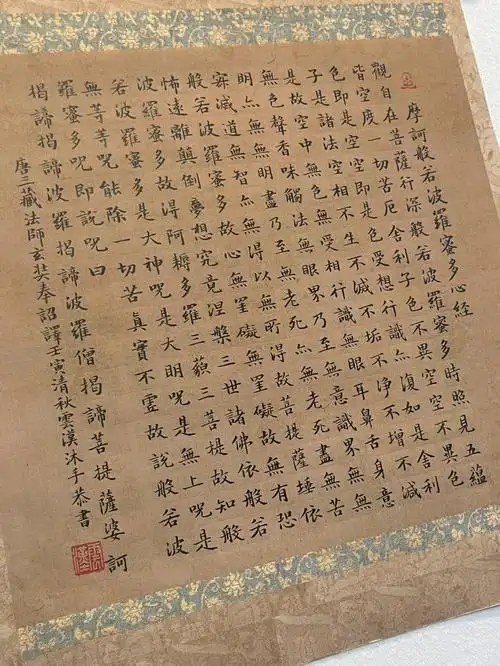 摩訶般若波羅蜜多心經
觀自在菩薩行深般若波羅蜜多時照見五蘊
皆空度一切苦厄舍利子色不異空空不異色
色即是空空即是色受想行識亦復如是舍利
子是諸法空相不生不滅不垢不淨不增不減
是故空中無色無受想行識無眼耳鼻舌身意
無色聲香味觸法無眼界乃至無意識界無無
明亦無無明盡乃至無老死亦無老死盡無苦
集滅道無智亦無得以無所得故菩提薩埵依
般若波羅蜜多故心無罣礙無罣礙故無有恐
怖遠離顛倒夢想究竟涅槃三世諸佛依般若
波羅蜜多故得阿耨多羅三藐三菩提故知般
若波羅蜜多是大神呪是大明呪是無上呪是
無等等呪能除一切苦真實不虛故說般若波
羅蜜多呪即說呪曰
揭諦揭諦波羅揭諦波羅僧揭諦菩提薩婆訶
唐三藏法師玄奘奉詔譯壬寅清秋雲漢沐手恭書
雲漢